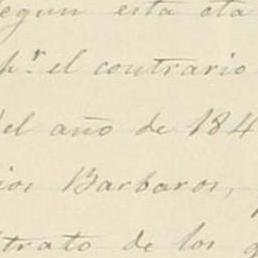 segun esta ota
pr. el contrario
del año de 184
ios Barbaros,
trato de los